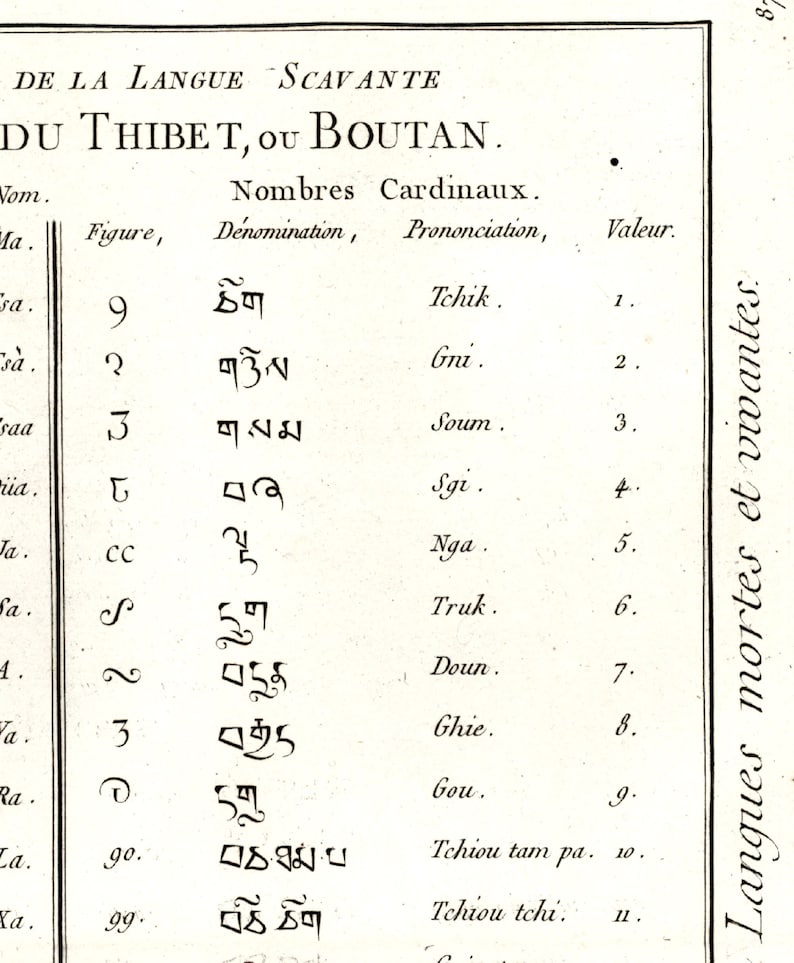 DE LA LANGUE SCAVANTE
DU THIBET, OU BOUTAN.
Nom. Nombres Cardinaux.
Ma. Figure, Dénomination, Prononciation, Valeur.
༡ ཆིག Tchik. 1.
༢ གཉིས Gni. 2.
༣ གསམ Soum. 3.
༤ Sgi. 4.
༥ ལྔ Nga. 5.
Sa. ༦ Truk. 6.
A. ༧ བདུན Doun. 7.
Va. ༨ Ghie. 8.
Ra. ༩ དགུ Gou. 9.
La. ༡༠. བཆ་ཐམ་པ Tchiou tam pa. 10.
Xa. ༡༡. བཆི ཆིག Tchiou tchi. 11.
Langues mortes et vivantes.